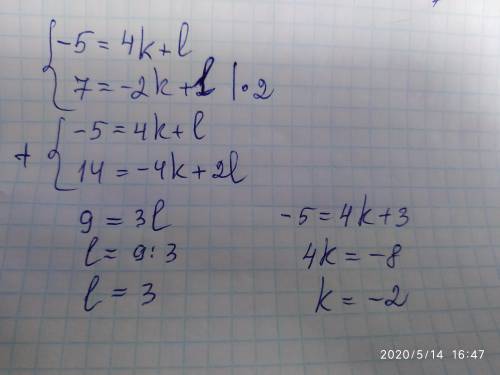 -5 = 4k + l
7 = -2k + l | • 2
+ -5 = 4k + l
14 = -4k + 2l
9 = 3l
l = 9 : 3
l = 3
-5 = 4k + 3
4k = -8
k = -2
2020/5/14 16:47